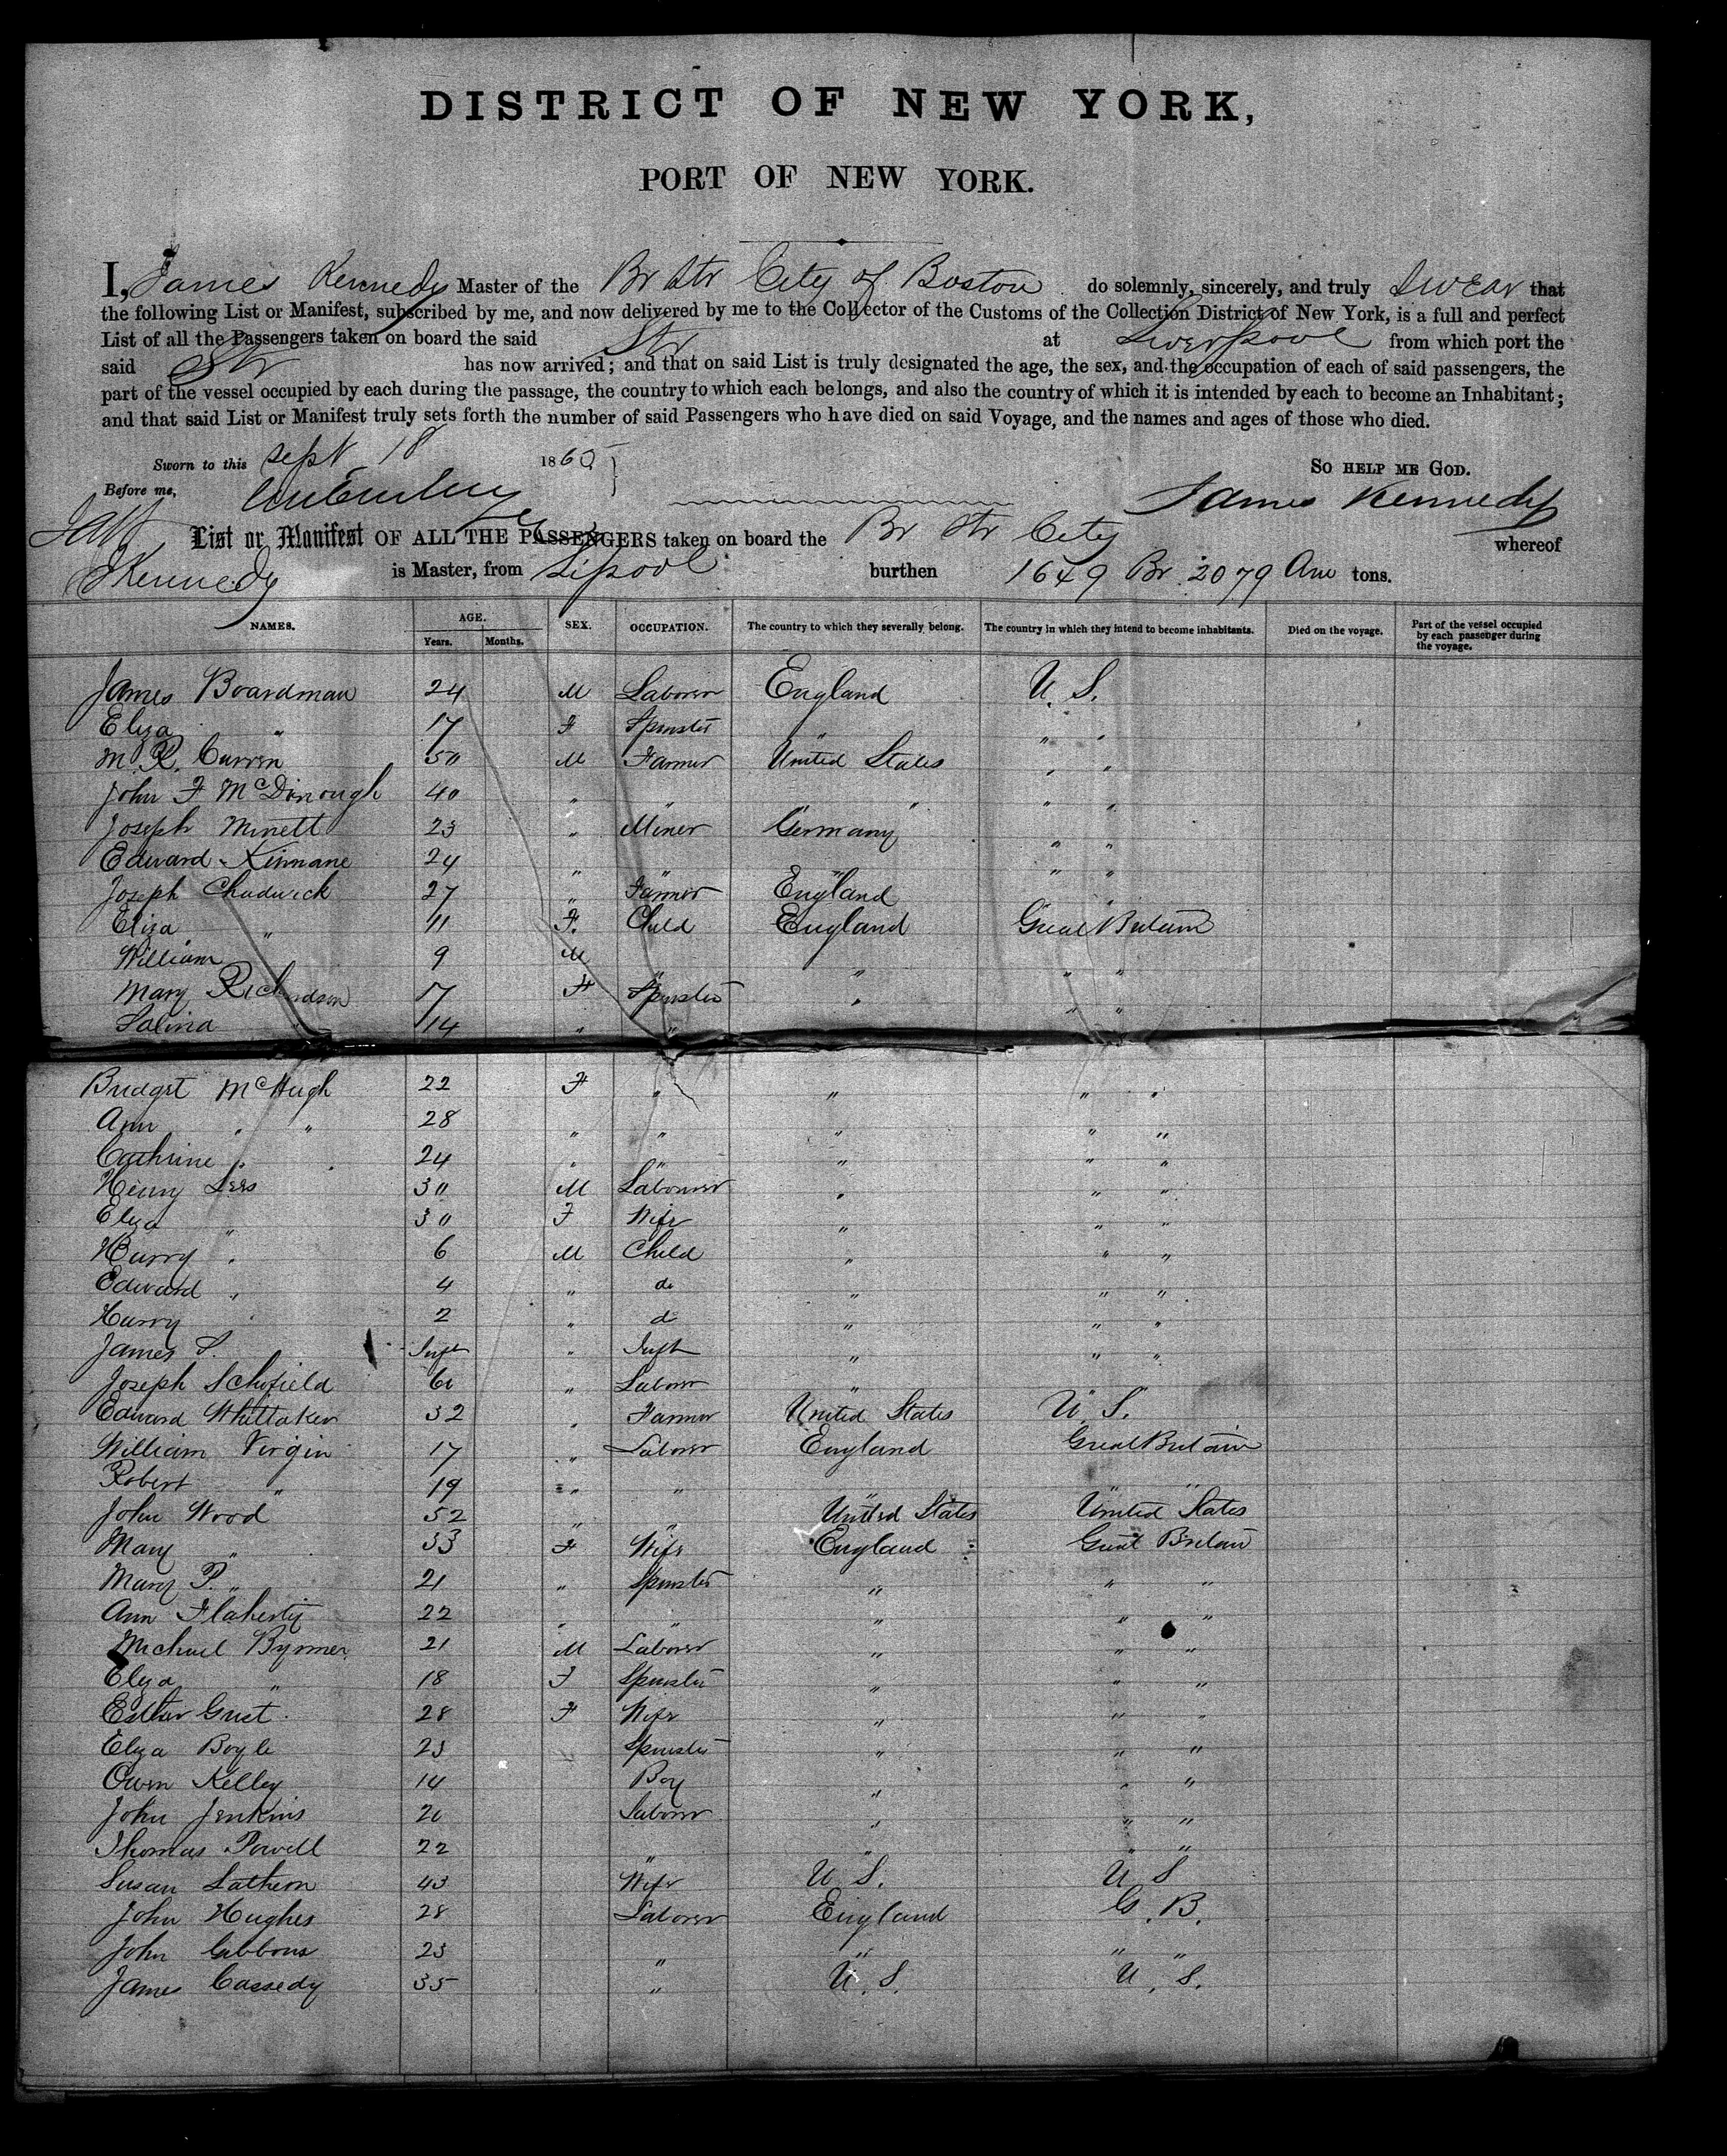 DISTRICT OF NEW YORK,
PORT OF NEW YORK.
I, James Kennedy Master of the Br Str City of Boston do solemnly, sincerely, and truly swear that
the following List or Manifest, subscribed by me, and now delivered by me to the Collector of the Customs of the Collection District of New York, is a full and perfect
List of all the Passengers taken on board the said Str at Liverpool from which port the
said Str has now arrived; and that on said List is truly designated the age, the sex, and the occupation of each of said passengers, the
part of the vessel occupied by each during the passage, the country to which each belongs, and also the country of which it is intended by each to become an Inhabitant;
and that said List or Manifest truly sets forth the number of said Passengers who have died on said Voyage, and the names and ages of those who died.
Sworn to this Sept 18 1865
So HELP ME GOD.
Before me,
James Kennedy
List or Manifest OF ALL THE PASSENGERS taken on board the Br Str City whereof
J Kennedy is Master, from Lipool burthen 1649 Br 2079 Am tons.
NAMES. AGE. Years. Months. SEX. OCCUPATION. The country to which they severally belong. The country in which they intend to become inhabitants. Died on the voyage. Part of the vessel occupied by each passenger during the voyage.
James Boardman 24 M Laborer England U. S.
Eliza " 17 F Spinster " " "
M R. Curren 50 M Farmer United States " "
John F McDonough 40 " " " " "
Joseph Minett 23 " Miner Germany " "
Edward Kinnane 24 " " " " "
Joseph Chadwick 27 " Farmer England " "
Eliza " 11 F. Child England Great Britain
William 9 M " " " "
Mary Richardson 17 F Spinster " " "
Salina " 14 " "
Bridget McHugh 22 F " " " "
Ann " " 28 " " " " "
Cathrine " " 24 " " " " "
Henry Lees 30 M Labourer " " "
Eliza " 30 F Wife " " "
Harry " 6 M Child " " "
Edward " 4 " do " " "
Harry " 2 " do " " "
James S. Inft " Inft " " "
Joseph Schofield 60 " Laborer " " "
Edward Whittaker 32 " Farmer United States U. S.
William Virgin 17 " Laborer England Great Britain
Robert " 19 " " " " "
John Wood 52 " " United States United States
Mary " 33 F Wife England Great Britain
Mary P. " 21 " Spinster " " "
Ann Flaherty 22 " " " " "
Michael 21 M Laborer " " "
Eliza " 18 F Spinster " " "
Esther 28 F Wife " " "
Eliza Boyle 23 Spinster " " "
Owen Kelley 14 Boy " " "
John Jenkins 20 Laborer " " "
Thomas Powell 22 " " " "
Susan Lathern 43 Wife U S. U S
John Hughes 28 Laborer England G. B.
John Gibbons 23 " " " "
James Cassedy 35 " U. S. U. S.